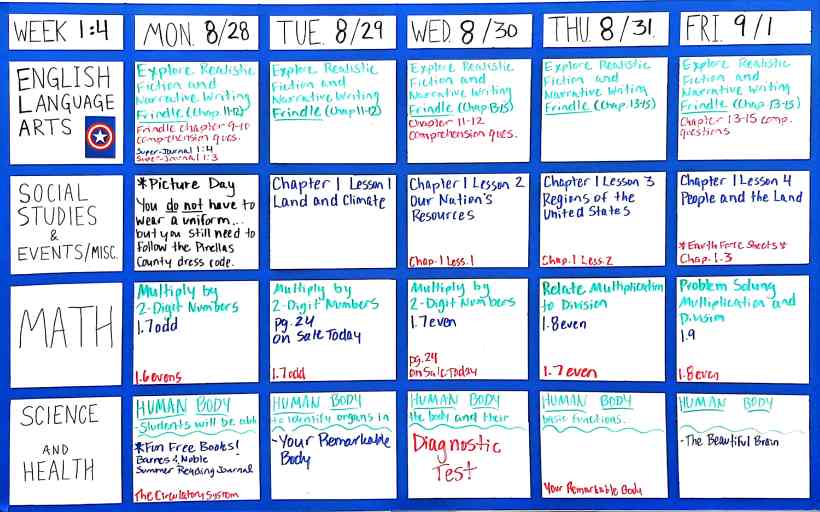 WEEK 1:4
MON. 8/28
TUE. 8/29
WED. 8/30
THU. 8/31
FRI. 9/1
ENGLISH
LANGUAGE
ARTS
Explore Realistic
Fiction and
Narrative Writing
Frindle (Chap. 11-12)
Frindle chapter 9-10
comprehension ques.
Super-Journal 1:4
Super-Journal 1:3
Explore Realistic
Fiction and
Narrative Writing
Frindle (Chap 11-12)
Explore Realistic
Fiction and
Narrative Writing
Frindle (Chap 13-15)
Chapter 11-12
comprehension ques.
Explore Realistic
Fiction and
Narrative Writing
Frindle (Chap. 13-15)
Explore Realistic
Fiction and
Narrative Writing
Frindle (Chap 13-15)
Chapter 13-15 comp.
questions
SOCIAL
STUDIES
&
EVENTS/MISC.
*Picture Day
You do not have to
wear a uniform...
but you still need to
follow the Pinellas
County dress code.
Chapter 1 Lesson 1
Land and Climate
Chapter 1 Lesson 2
Our Nation's
Resources
Chap. 1 Less. 1
Chapter 1 Lesson 3
Regions of the
United States
Chap. 1 Less. 2
Chapter 1 Lesson 4
People and the Land
*Earth Force Sheets*
Chap. 1-3
MATH
Multiply by
2-Digit Numbers
1.7 odd
1.6 evens
Multiply by
2-Digit Numbers
pg. 24
on Sale Today
1.7 odd
Multiply by
2-Digit Numbers
1.7 even
pg. 24
on Sale Today
Relate Multiplication
to Division
1.8 even
1.7 even
Problem Solving
Multiplication and
Division
1.9
1.8 even
SCIENCE
AND
HEALTH
HUMAN BODY
-Students will be able
*Fun Free Books!
Barnes & Noble
Summer Reading Journal
The Circulatory System
HUMAN BODY
to identify organs in
-Your Remarkable
Body
HUMAN BODY
the body and their
Diagnostic
Test
HUMAN BODY
basic functions.
Your Remarkable Body
HUMAN BODY
-The Beautiful Brain